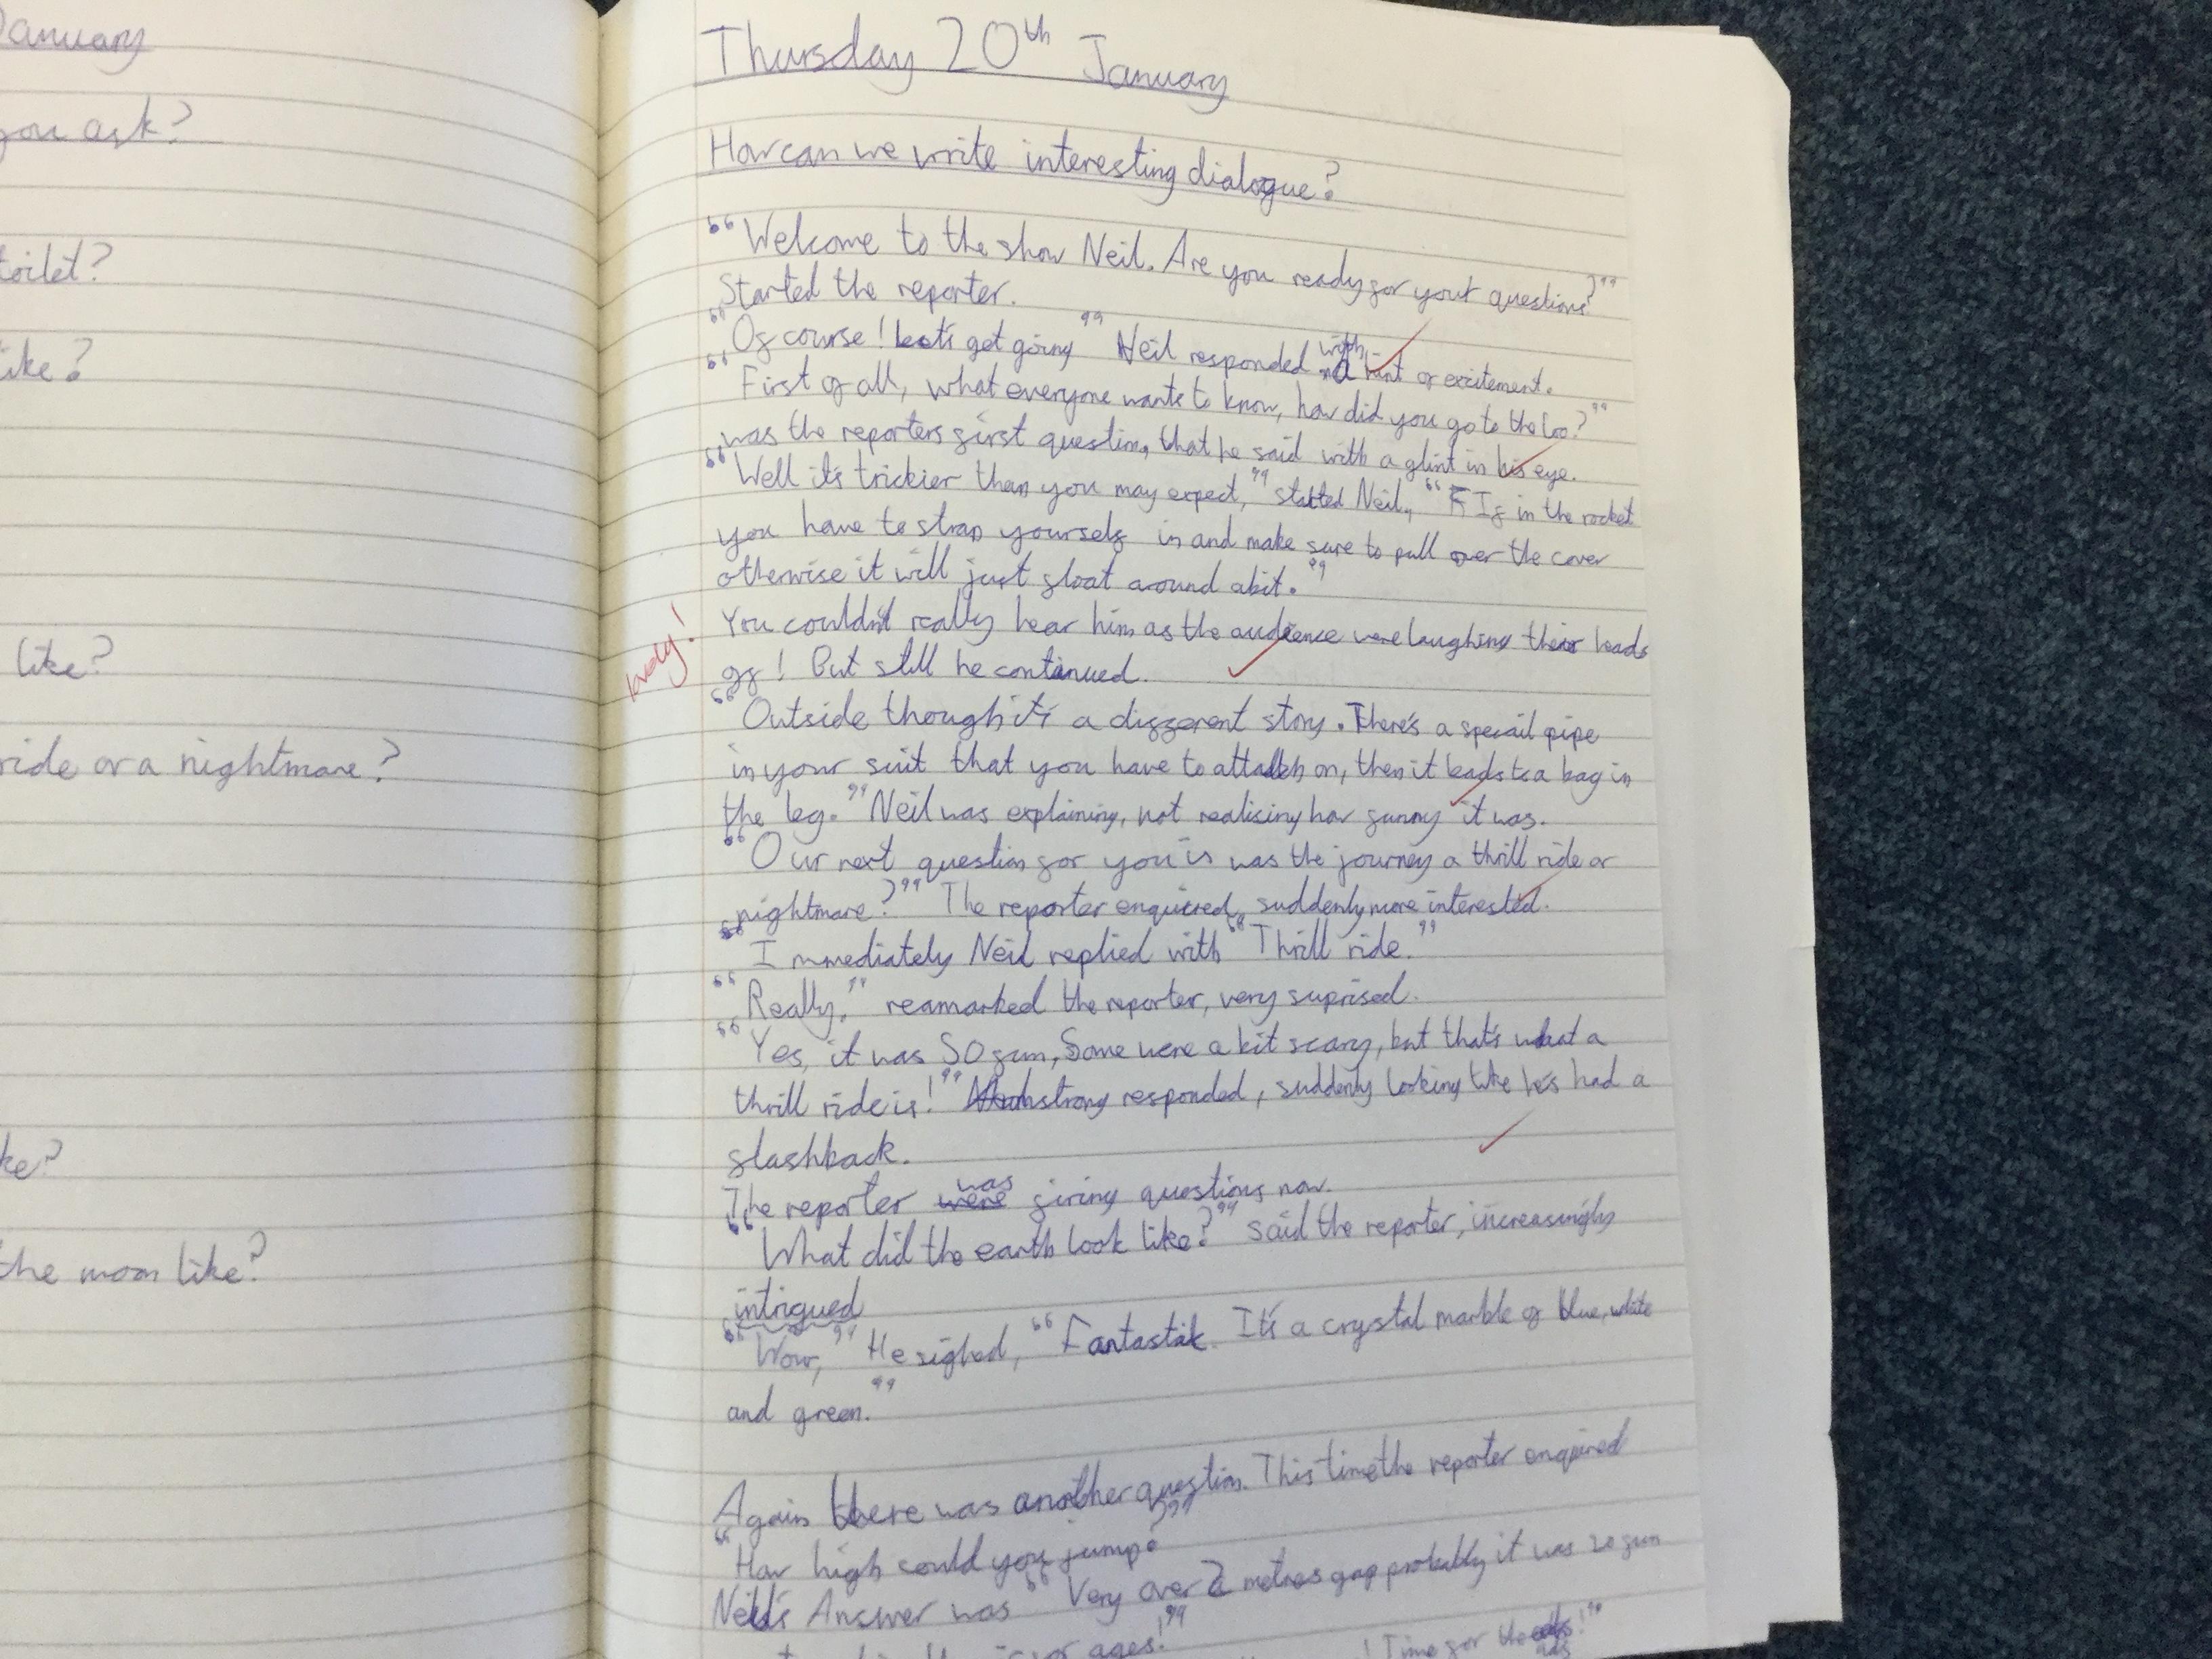 January
you ask?
toilet?
like?
like?
ride or a nightmare?
ke?
the moon like?
Thursday 20th January
How can we write interesting dialogue?
"Welcome to the show Neil. Are you ready for your questions?"
Started the reporter.
"Of course! Let's get going" Neil responded with a hint of excitement.
"First of all, what everyone wants to know, how did you go to the loo?"
was the reporters first question, that he said with a glint in his eye.
"Well it's trickier than you may expect," started Neil, "If in the rocket
you have to strap yourself in and make sure to pull over the cover
otherwise it will just float around abit."
You couldn't really hear him as the audience were laughing their heads
lovely!
off! But still he continued.
"Outside though it's a different story. There's a specail pipe
in your suit that you have to attatch on, then it leads to a bag in
the leg." Neil was explaining, not realising how funny it was.
"Our next question for you is was the journey a thrill ride or
nightmare?" The reporter enquired, suddenly more interested.
"Immediately Neil replied with "Thrill ride."
"Really," reamarked the reporter, very suprised.
"Yes, it was SO fun, Some were a bit scary, but that's what a
thrill ride is!" Armstrong responded, suddenly looking like he's had a
flashback.
The reporter were was firing questions now.
"What did the earth look like?" said the reporter, increasingly
intrigued
"Wow," He sighed, "Fantastic. It's a crystal marble of blue, white
and green."
Again there was another question. This time the reporter enquired
"How high could you jump?"
Neil's Answer was "Very over 2 metres gap probably it was so fun
for ages!" ! Time for the ads!"